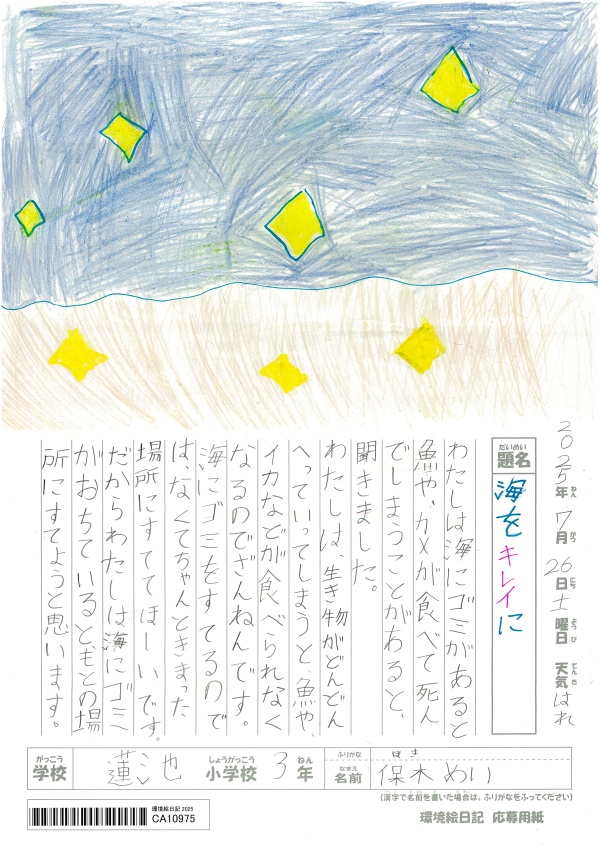 2025年ねん7月がつ26日にち土曜日ようび 天気てんきはれ
だいめい
題名
海をキレイに
わたしは海にゴミがあると
魚や、カメが食べて死ん
でしまうことがあると、
聞きました。
わたしは、生き物がどんどん
へっていってしまうと、魚や、
イカなどが食べられなく
なるのでざんねんです。
海にゴミをすてるので
は、なくてちゃんときまった
場所にすててほーいです。
だからわたしは海にゴミ
がおちていると、もとの場
所にすてようと思います。
がっこう
学校
蓮池
しょうがっこう
小学校
3
ねん
年
ふりがな
ほき
なまえ
名前
保木めい
(漢字で名前を書いた場合は、ふりがなをふってください)
環境絵日記 2025
CA10975
環境絵日記 応募用紙